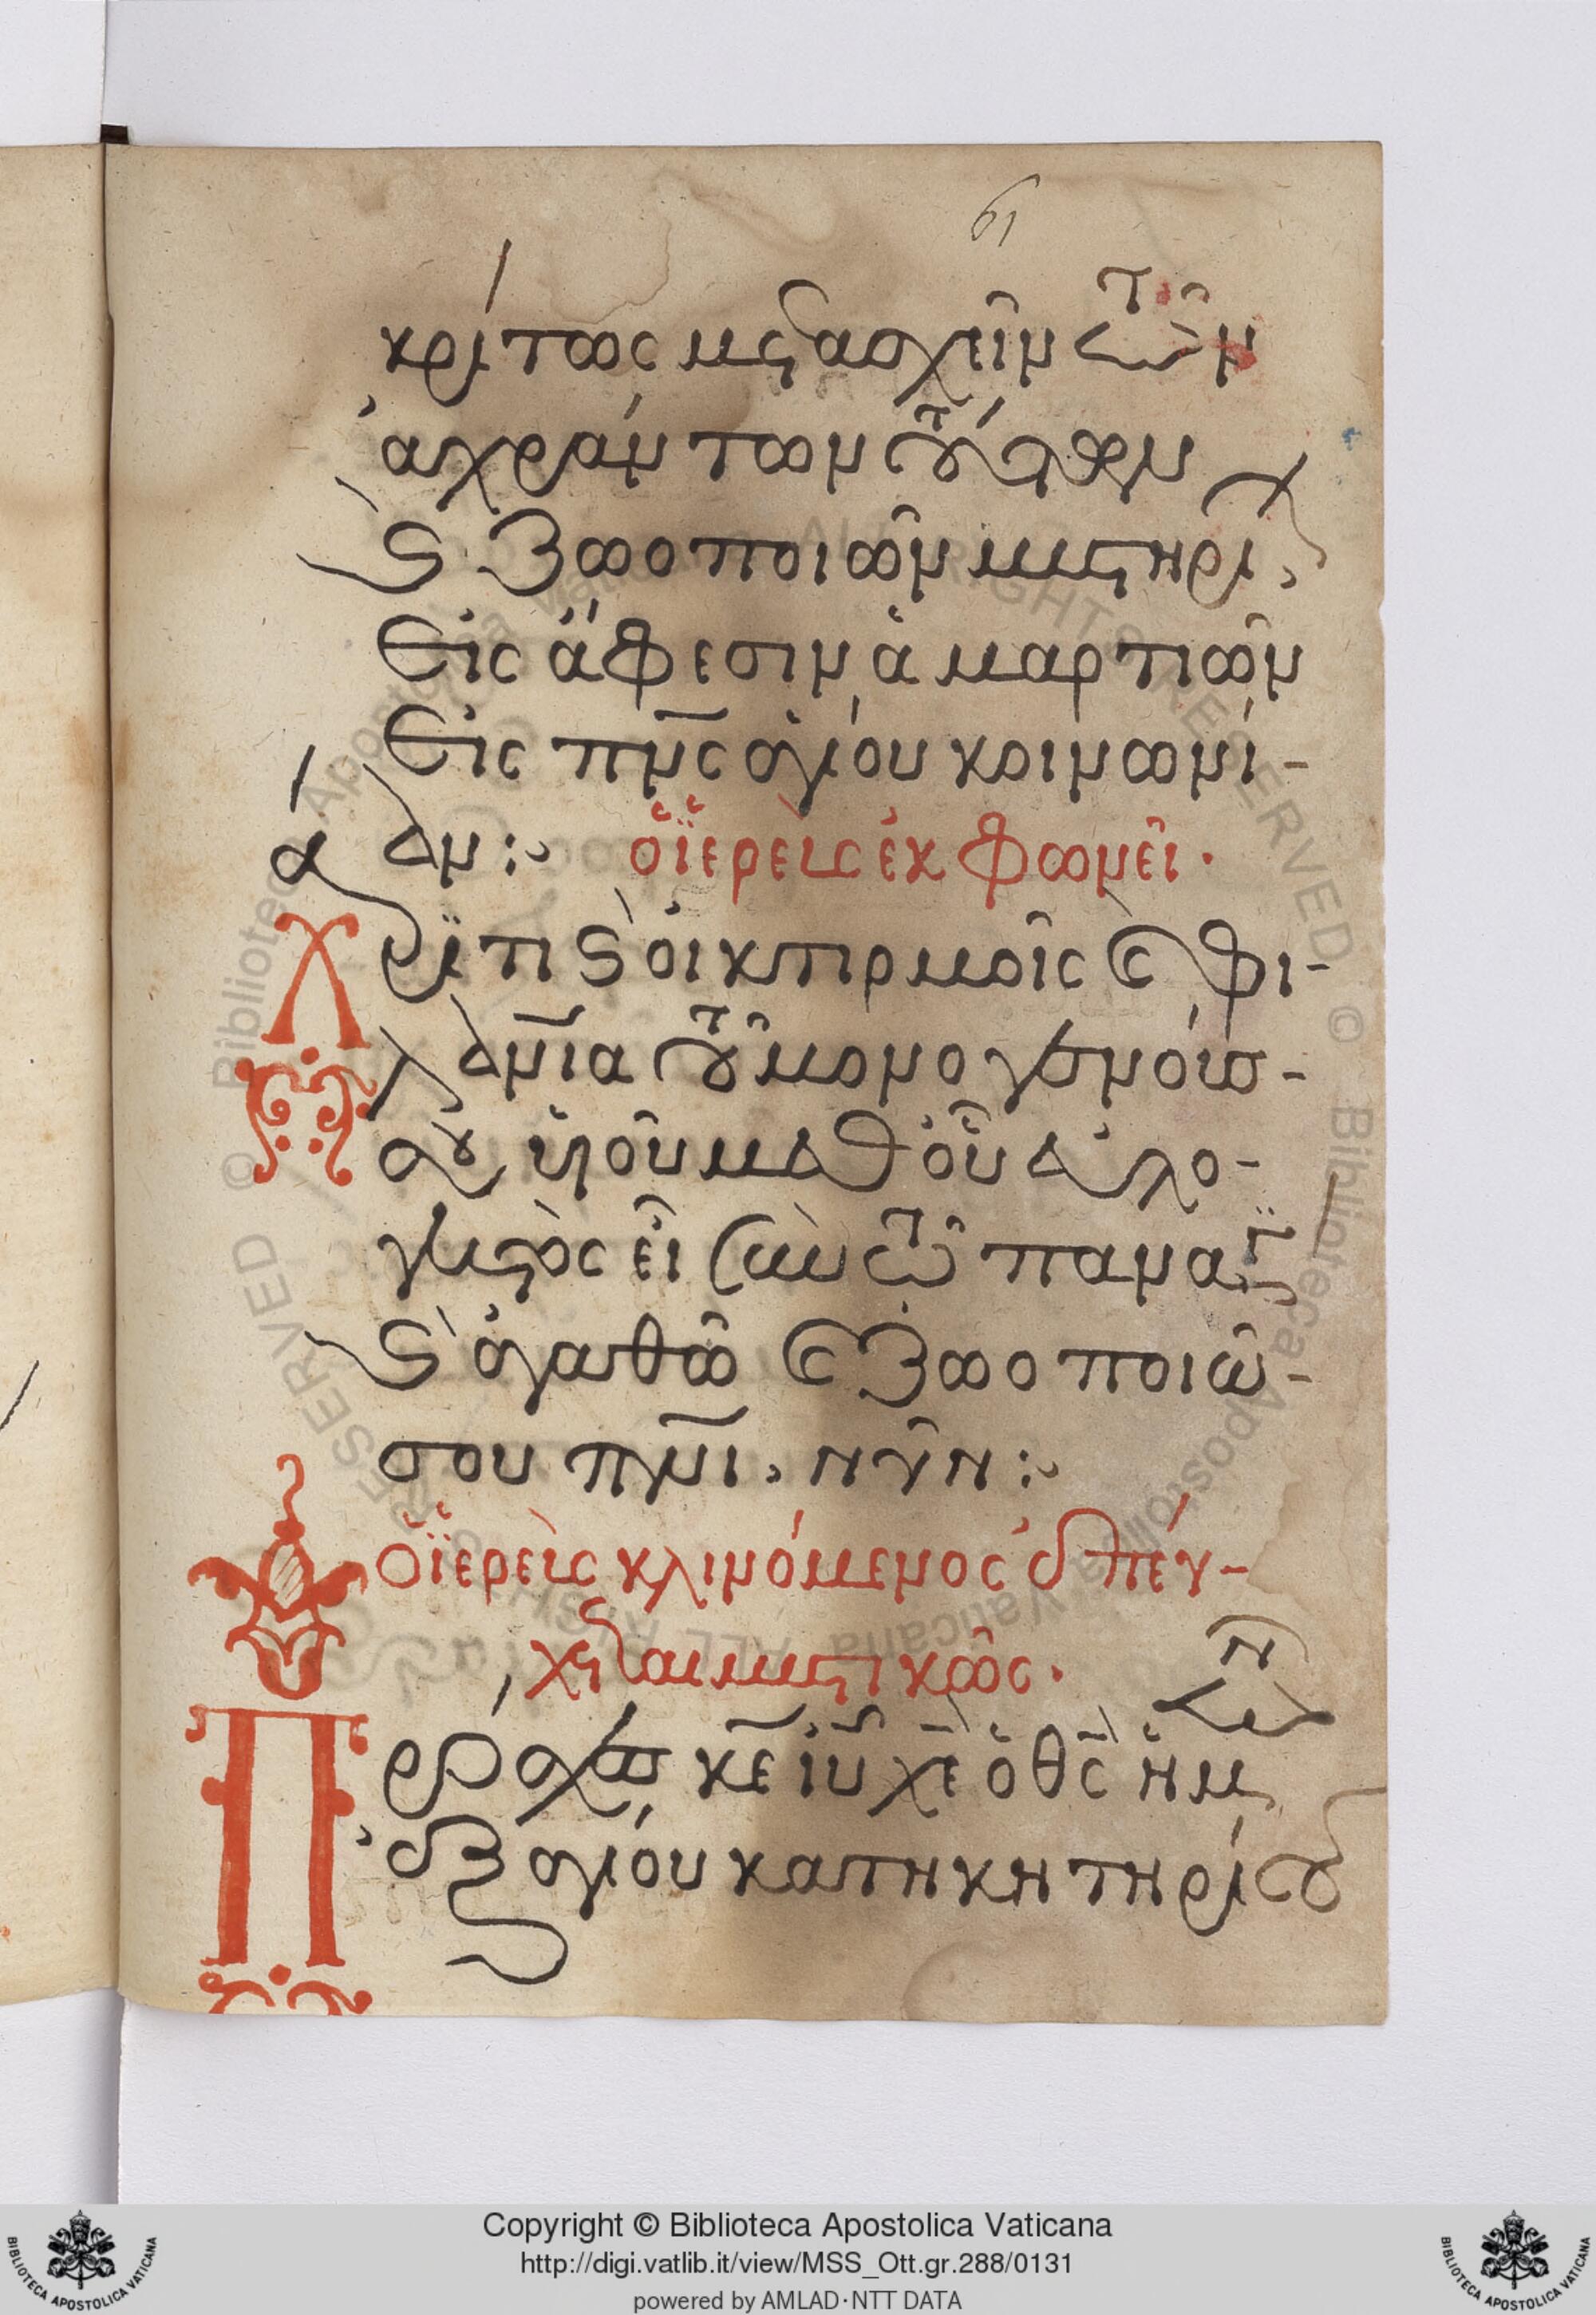 61
κρίτως μετασχεῖν τῶν
ἀχράντων τούτων
καὶ ζωοποιῶν μυστηρί,
εἰς ἄφεσιν ἁμαρτιῶν
εἰς πν̅ς ἁγίου κοινωνί-
αν: ὁ ἱερεὺς ἐκφωνεῖ.
Χάριτι καὶ οἰκτιρμοῖς καὶ φι-
λαν̅ία τοῦ μονογενοῦσ-
σου υἱοῦ μεθ' οὗ εὐλο-
γητὸς εἶ σὺν τῶ παναγί
καὶ ἀγαθῶ καὶ ζωοποιῶ-
σου πν̅ι. νῦν:
ὁ ἱερεὺς κλινόμενος ἐπεύ-
χεται μυστικῶς.
Πρόσχες κ̅ε ἰ̅υ χ̅ε ὁ θ̅ς ἡμῶν
ἐξ ἁγίου κατηκητηρίου
© Biblioteca Apostolica Vaticana ALL RIGHTS RESERVED
Copyright © Biblioteca Apostolica Vaticana
http://digi.vatlib.it/view/MSS_Ott.gr.288/0131
powered by AMLAD·NTT DATA
BIBLIOTECA APOSTOLICA VATICANA
BIBLIOTECA APOSTOLICA VATICANA